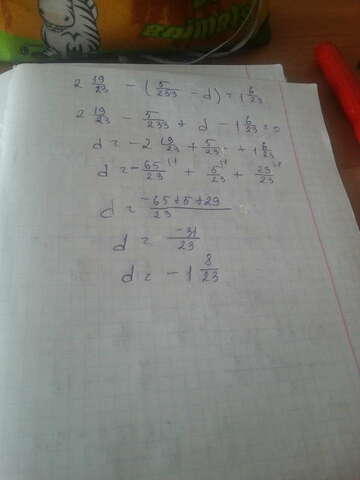 animals
2 19/23 - (5/233 - d) = 1 6/23
2 19/23 - 5/233 + d - 1 6/23 = 0
d = -2 19/23 + 5/23 + 1 6/23
d = -65/23 + 5/23 + 29/23
d = -65+5+29/23
d = -31/23
d = -1 8/23